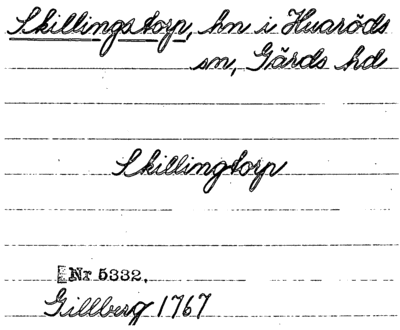 Skillingstorp, hn i Huaröds
sn, Gärds hd
Skillingtorp
Nr 5332.
Gillberg 1767